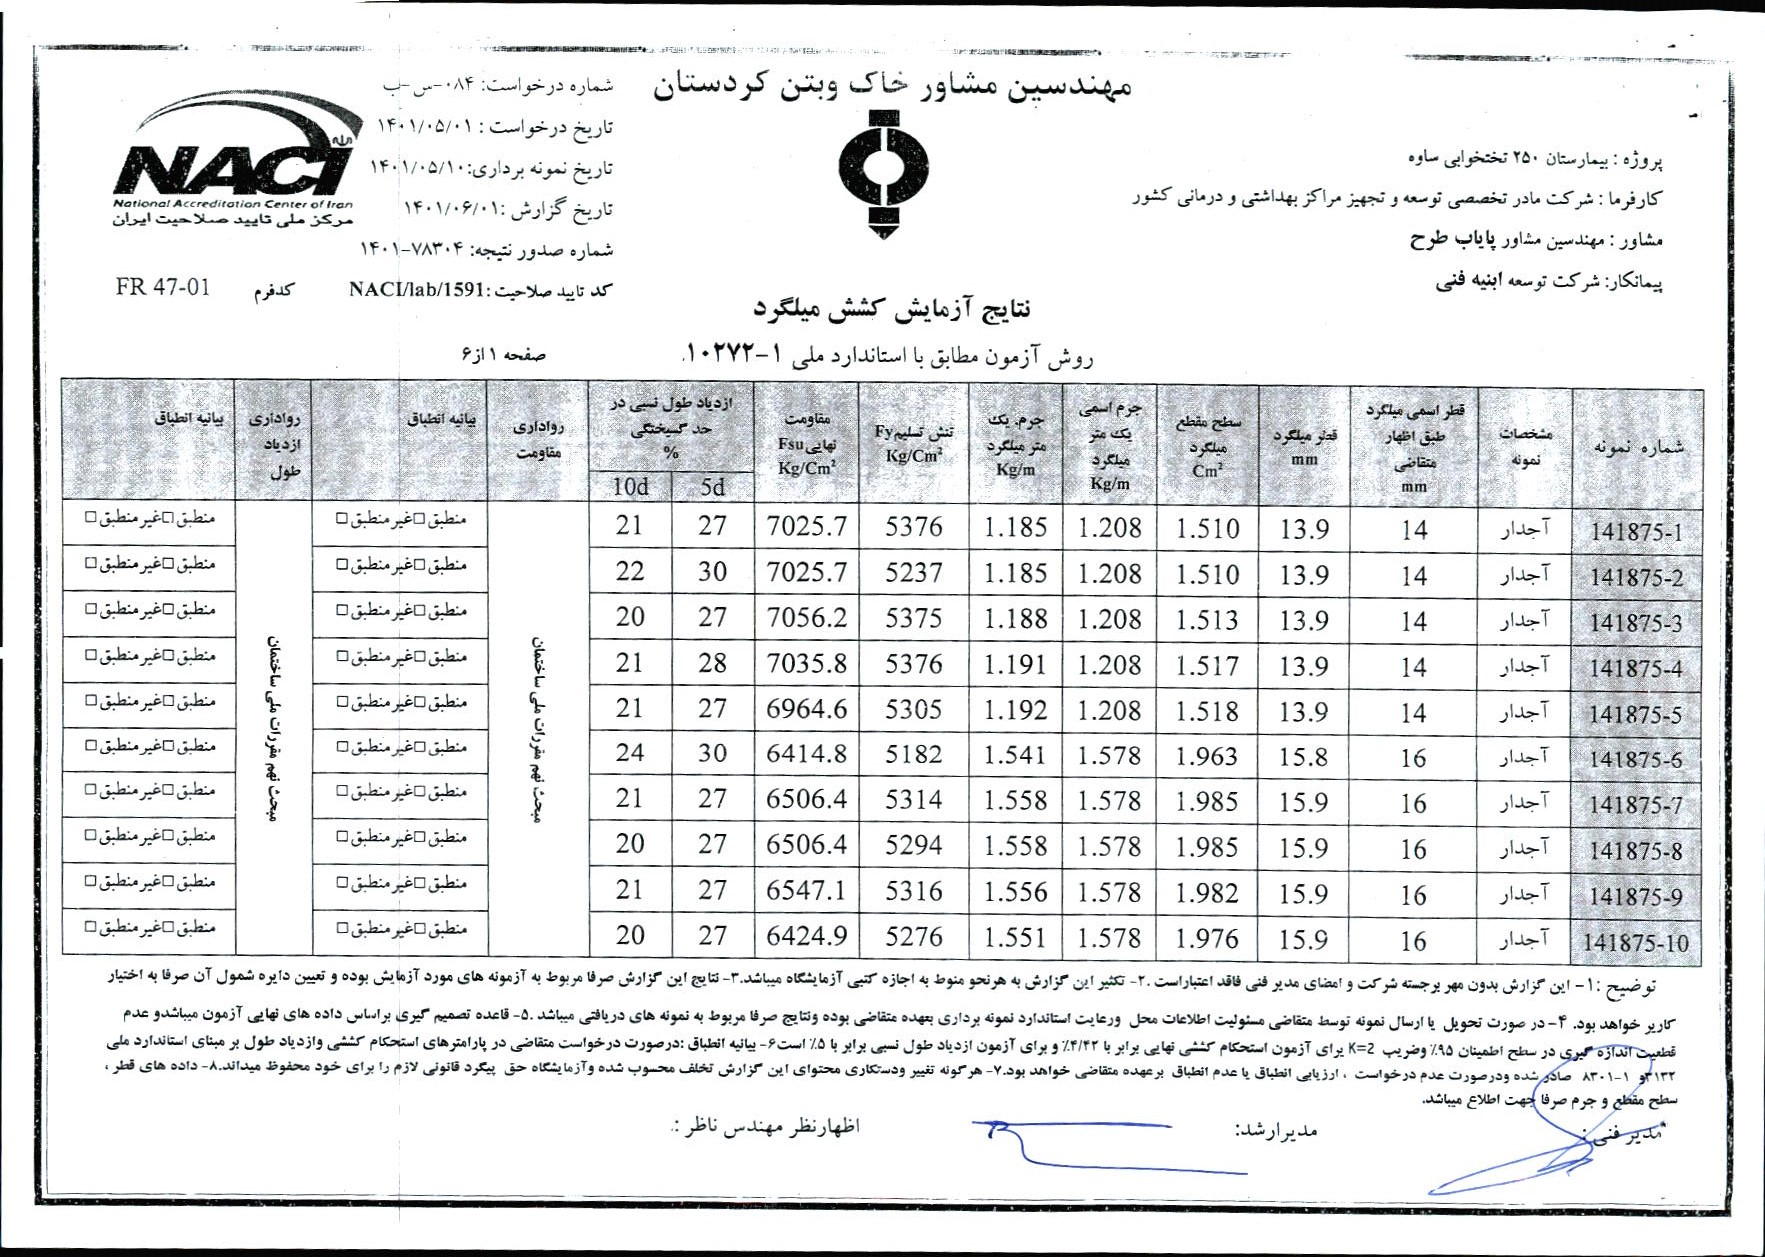 مهندسین مشاور خاک وبتن کردستان
پروژه : بیمارستان ۲۵۰ تختخوابی ساوه
کارفرما : شرکت مادر تخصصی توسعه و تجهیز مراکز بهداشتی و درمانی کشور
مشاور : مهندسین مشاور پایاب طرح
پیمانکار: شرکت توسعه ابنیه فنی
شماره درخواست: ۰۸۴-س-ب
تاریخ درخواست : ۱۴۰۱/۰۵/۰۱
تاریخ نمونه برداری:۱۴۰۱/۰۵/۱۰
تاریخ گزارش :۱۴۰۱/۰۶/۰۱
شماره صدور نتیجه: ۷۸۳۰۴-۱۴۰۱
کد تایید صلاحیت :NACI/lab/1591
کدفرم FR 47-01
NACI
National Accreditation Center of Iran
مرکز ملی تایید صلاحیت ایران
نتایج آزمایش کشش میلگرد
روش آزمون مطابق با استاندارد ملی ۱-۱۰۲۷۲.
صفحه ۱ از۶
شماره نمونه | مشخصات نمونه | قطر اسمی میلگرد طبق اظهار متقاضی mm | قطر میلگرد mm | سطح مقطع میلگرد Cm² | جرم اسمی یک متر میلگرد Kg/m | جرم یک متر میلگرد Kg/m | تنش تسلیم Fy Kg/Cm² | مقاومت نهایی Fsu Kg/Cm² | ازدیاد طول نسبی در حد گسیختگی % 5d | 10d | رواداری مقاومت | بیانیه انطباق | رواداری ازدیاد طول | بیانیه انطباق
141875-1 آجدار 14 13.9 1.510 1.208 1.185 5376 7025.7 27 21 منطبق□غیر منطبق□ منطبق□غیر منطبق□
141875-2 آجدار 14 13.9 1.510 1.208 1.185 5237 7025.7 30 22 منطبق□غیر منطبق□ منطبق□غیر منطبق□
141875-3 آجدار 14 13.9 1.513 1.208 1.188 5375 7056.2 27 20 منطبق□غیر منطبق□ منطبق□غیر منطبق□
141875-4 آجدار 14 13.9 1.517 1.208 1.191 5376 7035.8 28 21 منطبق□غیر منطبق□ منطبق□غیر منطبق□
141875-5 آجدار 14 13.9 1.518 1.208 1.192 5305 6964.6 27 21 منطبق□غیر منطبق□ منطبق□غیر منطبق□
141875-6 آجدار 16 15.8 1.963 1.578 1.541 5182 6414.8 30 24 منطبق□غیر منطبق□ منطبق□غیر منطبق□
141875-7 آجدار 16 15.9 1.985 1.578 1.558 5314 6506.4 27 21 منطبق□غیر منطبق□ منطبق□غیر منطبق□
141875-8 آجدار 16 15.9 1.985 1.578 1.558 5294 6506.4 27 20 منطبق□غیر منطبق□ منطبق□غیر منطبق□
141875-9 آجدار 16 15.9 1.982 1.578 1.556 5316 6547.1 27 21 منطبق□غیر منطبق□ منطبق□غیر منطبق□
141875-10 آجدار 16 15.9 1.976 1.578 1.551 5276 6424.9 27 20 منطبق□غیر منطبق□ منطبق□غیر منطبق□
مبحث نهم مقررات ملی ساختمان
مبحث نهم مقررات ملی ساختمان
توضیح :۱- این گزارش بدون مهر برجسته شرکت و امضای مدیر فنی فاقد اعتباراست .۲- تکثیر این گزارش به هرنحو منوط به اجازه کتبی آزمایشگاه میباشد.۳- نتایج این گزارش صرفا مربوط به آزمونه های مورد آزمایش بوده و تعیین دایره شمول آن صرفا به اختیار
کاربر خواهد بود. ۴- در صورت تحویل یا ارسال نمونه توسط متقاضی مسئولیت اطلاعات محل ورعایت استاندارد نمونه برداری بعهده متقاضی بوده ونتایج صرفا مربوط به نمونه های دریافتی میباشد .۵- قاعده تصمیم گیری براساس داده های نهایی آزمون میباشدو عدم
قطعیت اندازه گیری در سطح اطمینان ۹۵٪ وضریب K=2 برای آزمون استحکام کششی نهایی برابر با ۴/۴۲٪ و برای آزمون ازدیاد طول نسبی برابر با ۵٪ است۶- بیانیه انطباق :درصورت درخواست متقاضی در پارامترهای استحکام کششی وازدیاد طول بر مبنای استاندارد ملی
۳۱۳۲و ۱-۸۳۰۱ صادر شده ودرصورت عدم درخواست ، ارزیابی انطباق یا عدم انطباق برعهده متقاضی خواهد بود.۷- هرگونه تغییر ودستکاری محتوای این گزارش تخلف محسوب شده وآزمایشگاه حق پیگرد قانونی لازم را برای خود محفوظ میداند.۸- داده های قطر ،
سطح مقطع و جرم صرفا جهت اطلاع میباشد.
مدیر فنی : مدیرارشد: اظهارنظر مهندس ناظر :.